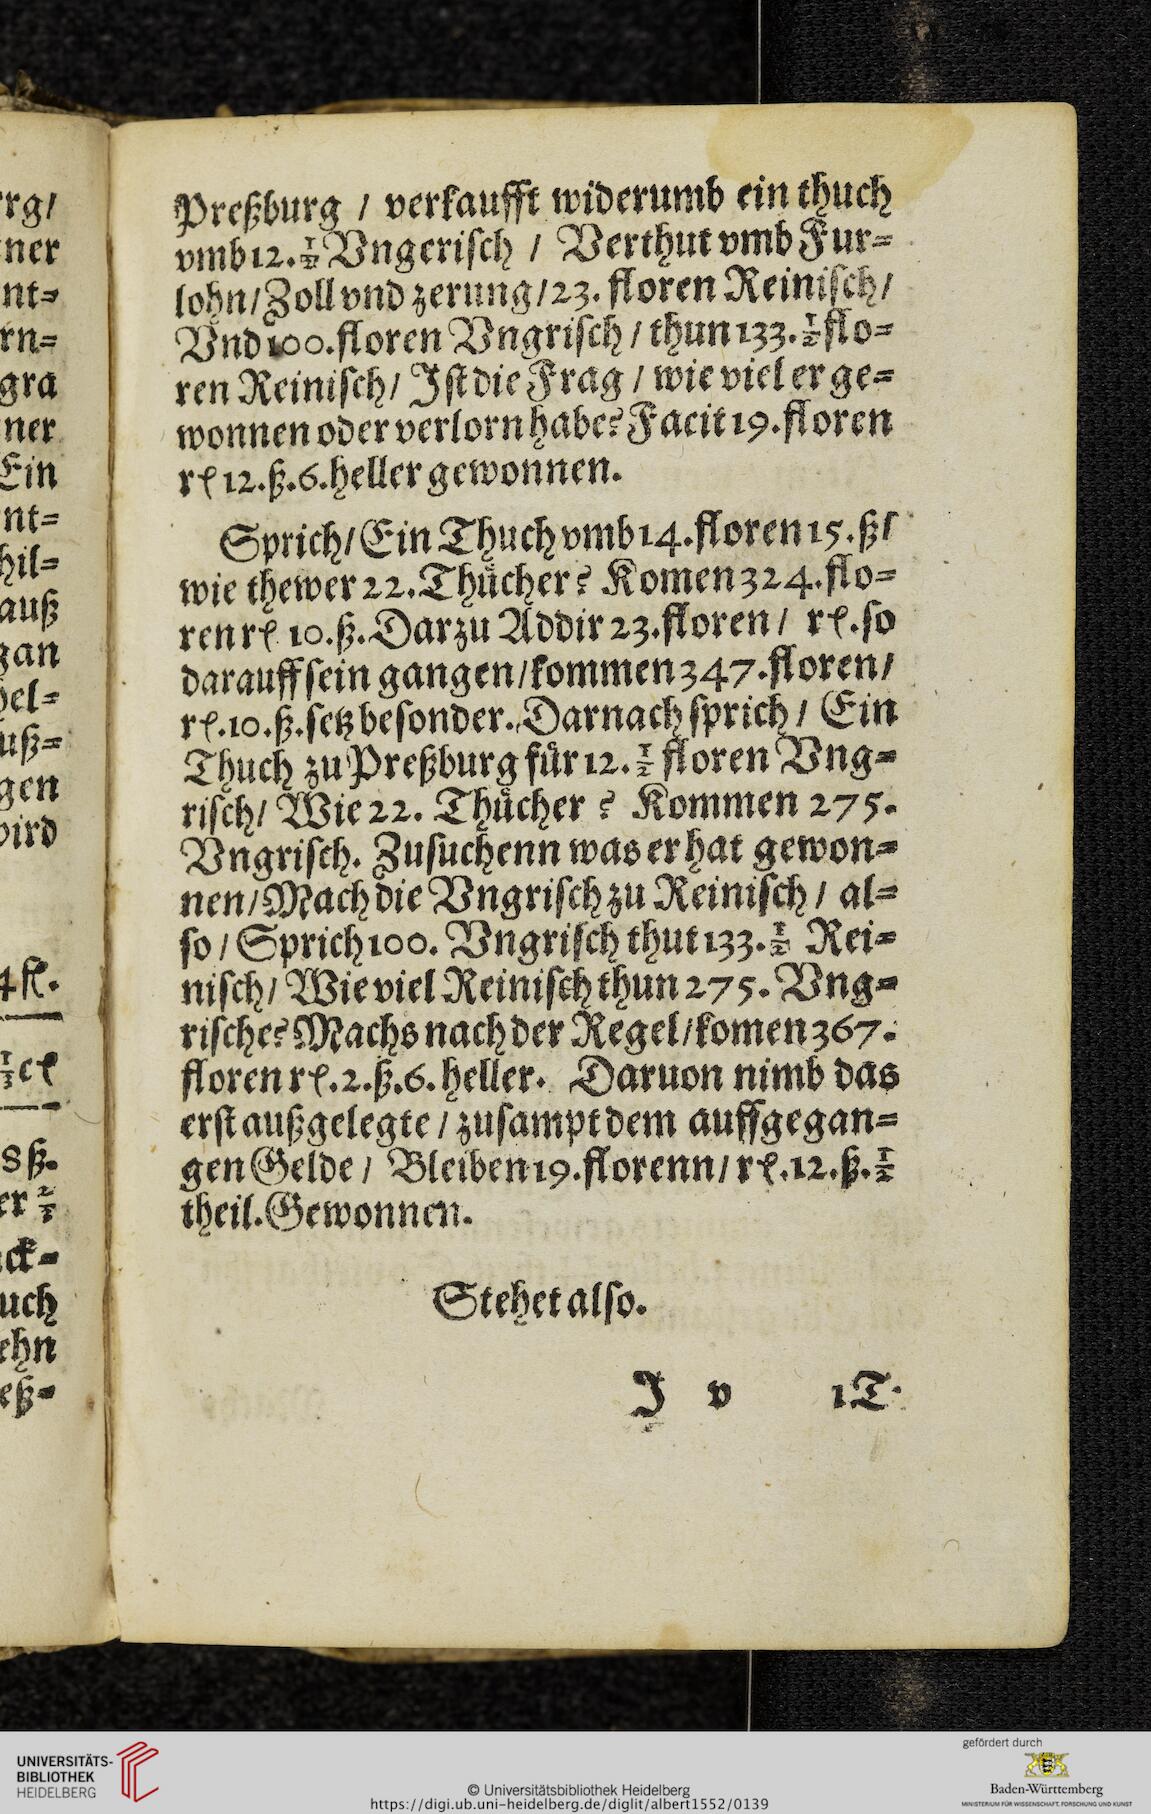 rg/
ner
nt=
rn=
gra
ner
Ein
nt=
hil=
auß
gan
hel=
uß=
gen
wird
4 fl.
8 ß.
ck=
uch
ehn
eß=
Preßburg / verkaufft widerumb ein thuch
vmb 12. ½ Vngerisch / Verthut vmb Fur=
lohn / Zoll vnd zerung / 23. floren Reinisch /
Vnd 100. floren Vngrisch / thun 133. ½ flo=
ren Reinisch / Ist die Frag / wie viel er ge=
wonnen oder verlorn habe? Facit 19. floren
rł 12. ß. 6. heller gewonnen.
Sprich / Ein Thuch vmb 14. floren 15. ß /
wie thewer 22. Thuͤcher? Komen 324. flo=
ren rł 10. ß. Darzu Addir 23. floren / rł. so
darauff sein gangen / kommen 347. floren /
rł. 10. ß. setz besonder. Darnach sprich / Ein
Thuch zu Preßburg fuͤr 12. ½ floren Vng=
risch / Wie 22. Thuͤcher? Kommen 275.
Vngrisch. Zusuchenn was er hat gewon=
nen / Mach die Vngrisch zu Reinisch / al=
so / Sprich 100. Vngrisch thut 133. ½ Rei=
nisch / Wie viel Reinisch thun 275. Vng=
rische? Machs nach der Regel / komen 367.
floren rł. 2. ß. 6. heller. Daruon nimb das
erst außgelegte / zusampt dem auffgegan=
gen Gelde / Bleiben 19. florenn / rł. 12. ß. ½
theil. Gewonnen.
Stehet also.
J v 1 T.
UNIVERSITÄTS-
BIBLIOTHEK
HEIDELBERG
© Universitätsbibliothek Heidelberg
https://digi.ub.uni-heidelberg.de/diglit/albert1552/0139
gefördert durch
Baden-Württemberg
MINISTERIUM FÜR WISSENSCHAFT, FORSCHUNG UND KUNST